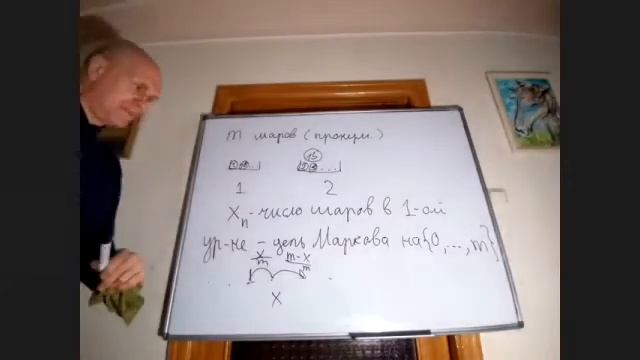 m шаров (пронум.)
15
1 2
Xₙ - число шаров в 1-ой
ур-не - цепь Маркова на {0, ..., m}
x/m m-x/m
x